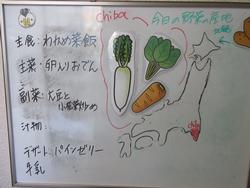 chiba
今日の野菜の産地
主食: わかめ菜飯
主菜: 卵入りおでん
副菜: 大豆と
小松菜炒め
汁物:
デザート パインゼリー
牛乳